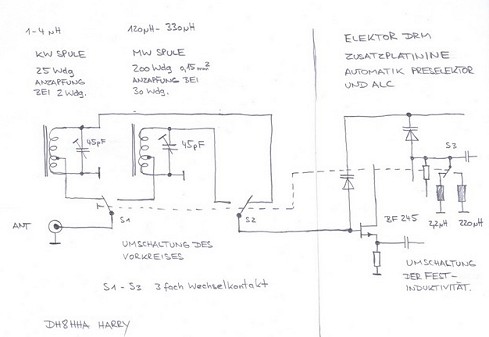 1-4 µH
KW SPULE
25 Wdg
ANZAPFUNG
BEI 2 Wdg.
120µH-330µH
MW SPULE
200 Wdg 0,15mm²
ANZAPFUNG BEI
30 Wdg.
ELEKTOR DRM
ZUSATZPLATININE
AUTOMATIK PRESELEKTOR
UND ALC
45pF
45pF
S3
ANT
S1
S2
BF 245
2,2µH
220µH
UMSCHALTUNG DES
VORKREISES
UMSCHALTUNG
DER FEST-
INDUKTIVITÄT.
S1 - S3 3fach Wechselkontakt
DH8HHA HARRY